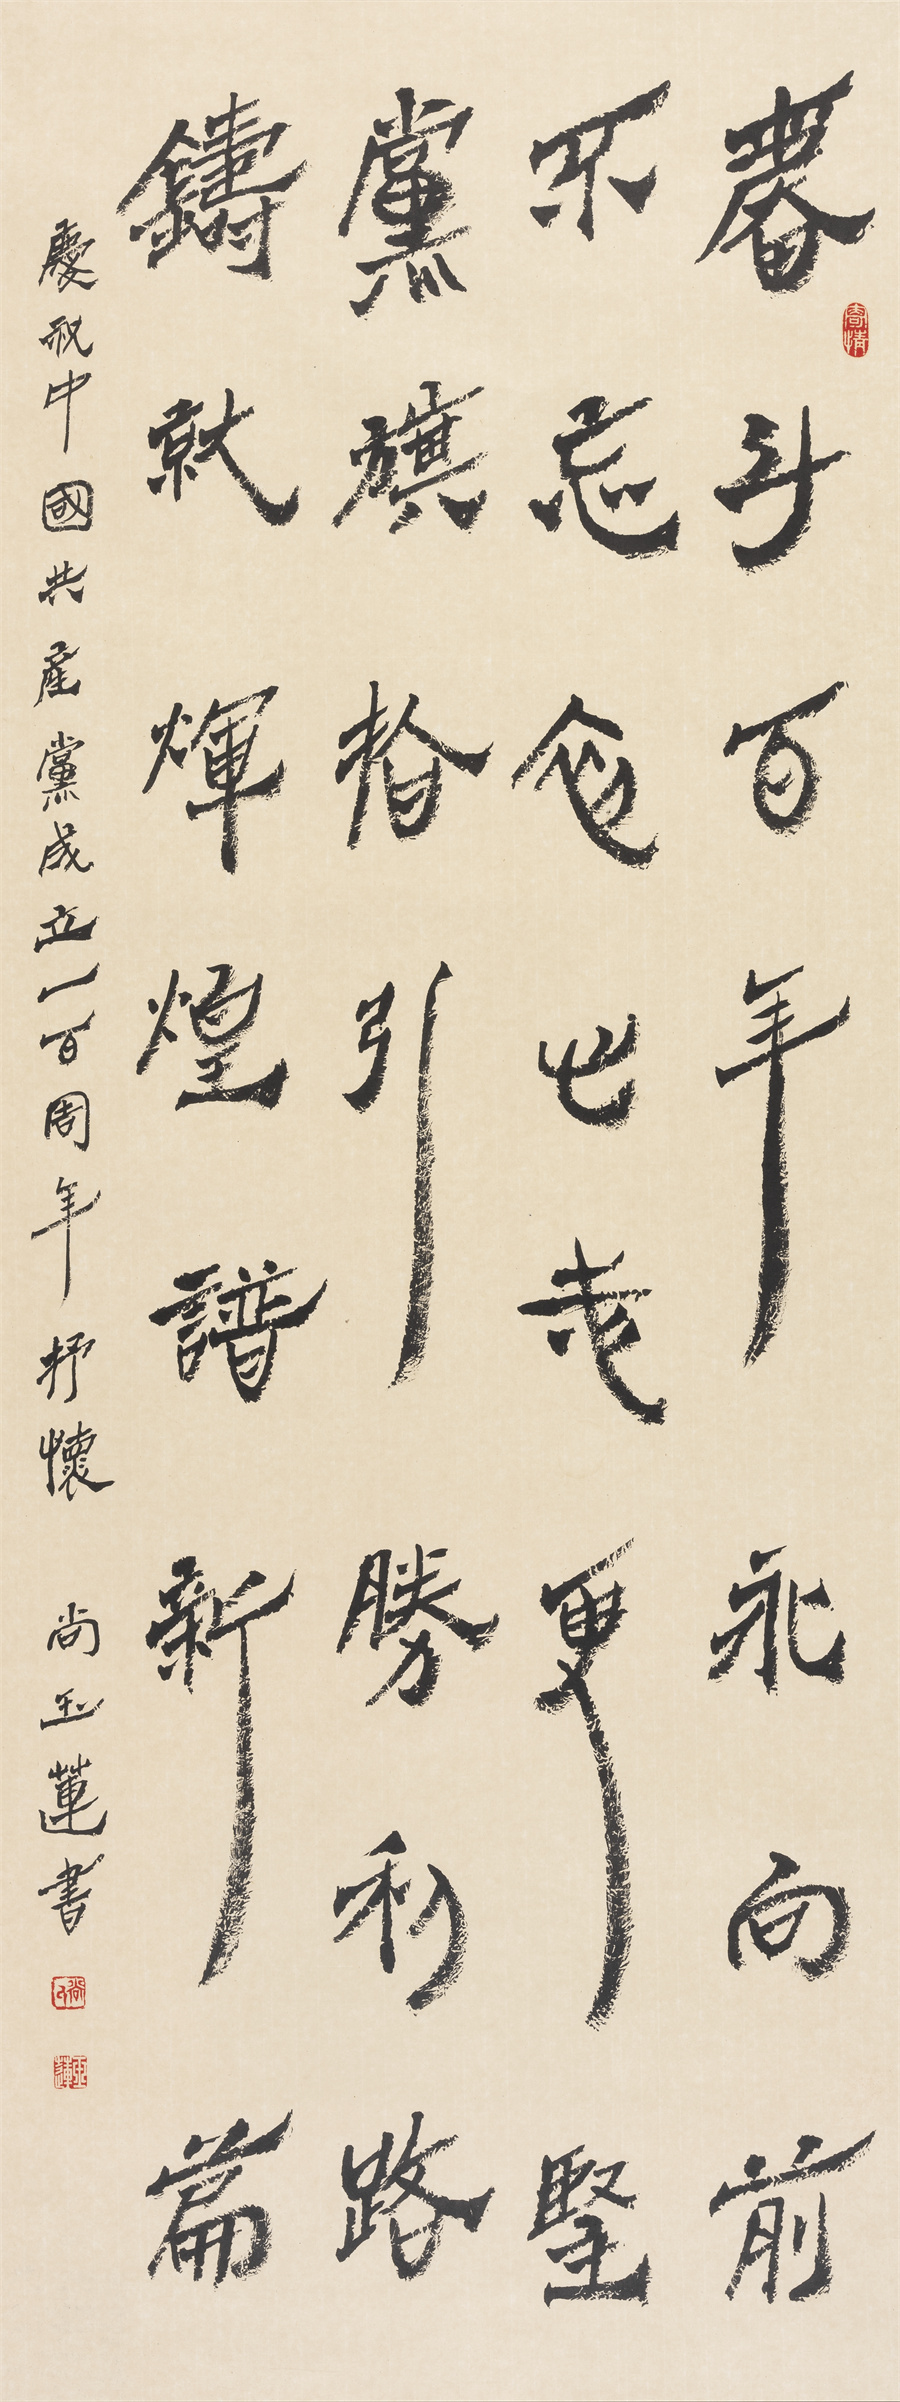 奮斗百年永向前
不忘更堅
黨旗指引勝利路
鑄就輝煌譜新篇
慶祝中國共産黨成立一百周年抒懷 尚玉蓮書
寄情
玉蓮